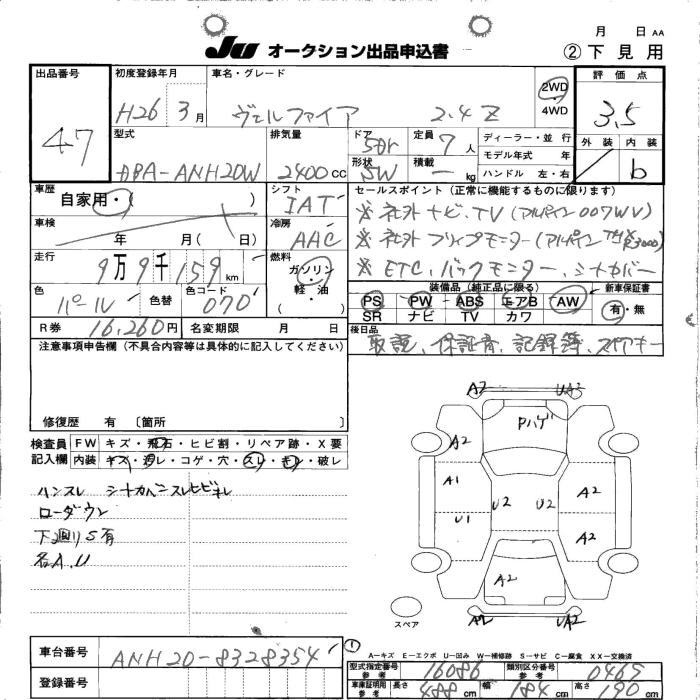 月 日 AA
JU オークション出品申込書
② 下見用
出品番号
47
初度登録年月
H26 3月
車名・グレード
ヴェルファイア 2.4Z
2WD
4WD
評価点
3.5
外装 内装
b
型式
DBA-ANH20W
排気量
2400 CC
ドア
5Dr
形状
SW
定員
7人
積載
- kg
ディーラー・並行
モデル年式 年
ハンドル 左・右
車歴
自家用・( )
車検
年 月( 日)
走行
9万9千159 km
色
パール
色替
色コード
070
R券 16,260円
名変期限 月 日
シフト
IAT
冷房
AAC
燃料
ガソリン・
軽・油
( )
セールスポイント(正常に機能するものに限ります)
※社外ナビ、TV(アルパイン007WV)
※社外フリップモニター(アルパイン
※ETC、バックモニター、シートカバー
装備品(純正品に限る)
PS PW ABS エアB AW
SR ナビ TV カワ
新車保証書
有・無
後日品
取説、保証書、記録簿、スペアキー
注意事項申告欄(不具合内容等は具体的に記入してください)
修復歴 有 〔箇所
検査員
記入欄
FW キズ・飛石・ヒビ割・リペア跡・X要
内装 キズ・汚レ・コゲ・穴・スレ・キレ・破レ
ハンスレ シートカバースレヒビキレ
ローダウン
下廻りS有
各A.U
A2 UA2
Pハゲ
A2
A1 A2
U2 U2
U1 A2
A2
A2 UA2
スペア
車台番号
ANH20-8328354
登録番号
①
A-キズ E-エクボ U-凹み W-補修跡 S-サビ C-腐食 XX-交換済
型式指定番号
参考
16086
類別区分番号
参考
0465
車庫証明用
参考
長さ 488 cm
幅 184 cm
高さ 190 cm